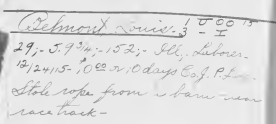 Belmont Louis - 1 U 00 15
3 - I
29; - 5.9¾; - 152; - Ill, Laborer.
12/24/15; 10 00 or 10 days C.J.P.
Stole rope from a barn near
race track -